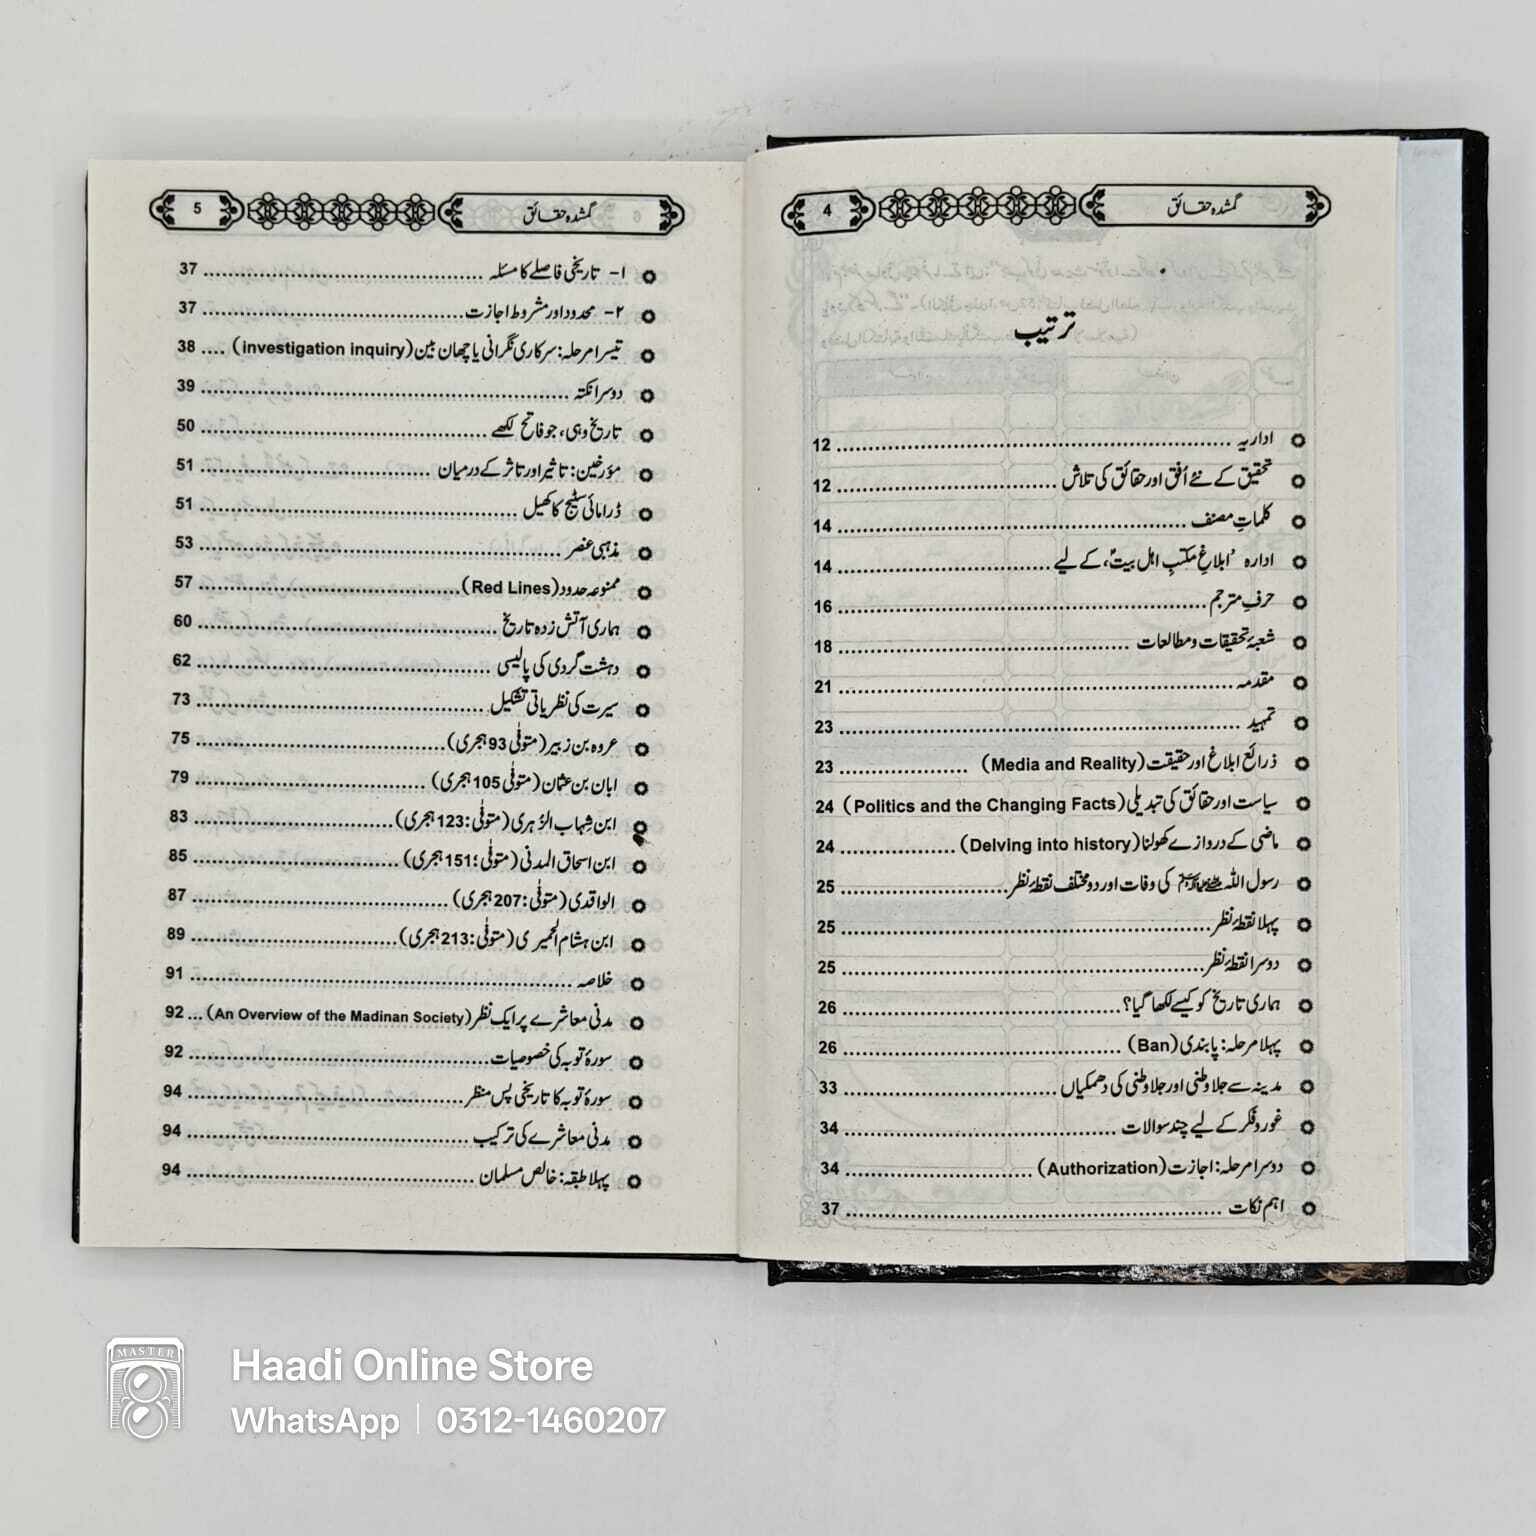 گمشدہ حقائق 4
ترتیب
اداریہ ........ 12
تحقیق کے نئے اُفق اور حقائق کی تلاش ........ 12
کلماتِ مصنف ........ 14
ادارہ 'ابلاغِ مکتبِ اہل بیتؑ، کے لیے ........ 14
حرفِ مترجم ........ 16
شعبۂ تحقیقات و مطالعات ........ 18
مقدمہ ........ 21
تمہید ........ 23
ذرائع ابلاغ اور حقیقت (Media and Reality) ........ 23
سیاست اور حقائق کی تبدیلی (Politics and the Changing Facts) 24
ماضی کے دروازے کھولنا (Delving into history) ........ 24
رسول اللہ ﷺ کی وفات اور دو مختلف نقطۂ نظر ........ 25
پہلا نقطۂ نظر ........ 25
دوسرا نقطۂ نظر ........ 25
ہماری تاریخ کو کیسے لکھا گیا؟ ........ 26
پہلا مرحلہ: پابندی (Ban) ........ 26
مدینہ سے جلاوطنی اور جلاوطنی کی دھمکیاں ........ 33
غور و فکر کے لیے چند سوالات ........ 34
دوسرا مرحلہ: اجازت (Authorization) ........ 34
اہم نکات ........ 37
گمشدہ حقائق 5
۱- تاریخی فاصلے کا مسئلہ ........ 37
۲- محدود اور مشروط اجازت ........ 37
تیسرا مرحلہ: سرکاری نگرانی یا چھان بین (investigation inquiry) .... 38
دوسرا نکتہ ........ 39
تاریخ وہی، جو فاتح لکھے ........ 50
مؤرخین: تاثیر اور تاثر کے درمیان ........ 51
ڈرامائی سٹیج کا کھیل ........ 51
مذہبی عنصر ........ 53
ممنوعہ حدود (Red Lines) ........ 57
ہماری آتش زدہ تاریخ ........ 60
دہشت گردی کی پالیسی ........ 62
سیرت کی نظریاتی تشکیل ........ 73
عروہ بن زبیر (متوفّٰی 93 ہجری) ........ 75
ابان بن عثمان (متوفّٰی 105 ہجری) ........ 79
ابن شِہاب الزُہری (متوفّٰی: 123 ہجری) ........ 83
ابن اسحاق المدنی (متوفّٰی: 151 ہجری) ........ 85
الواقدی (متوفّٰی: 207 ہجری) ........ 87
ابن ہشام الحمیری (متوفّٰی: 213 ہجری) ........ 89
خلاصہ ........ 91
مدنی معاشرے پر ایک نظر (An Overview of the Madinan Society) ... 92
سورۂ توبہ کی خصوصیات ........ 92
سورۂ توبہ کا تاریخی پس منظر ........ 94
مدنی معاشرے کی ترکیب ........ 94
پہلا طبقہ: خالص مسلمان ........ 94
MASTER
Haadi Online Store
WhatsApp | 0312-1460207